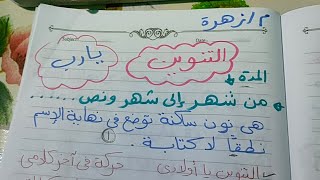 م / زهرة
التنوين
يارب
المدة
من شهر إلى شهر ونص ......
هى نون ساكنة توضع في نهاية الإسم
نطقاً لا كتابة .
التنوين يا أولادى
حركة في آخر كلامى